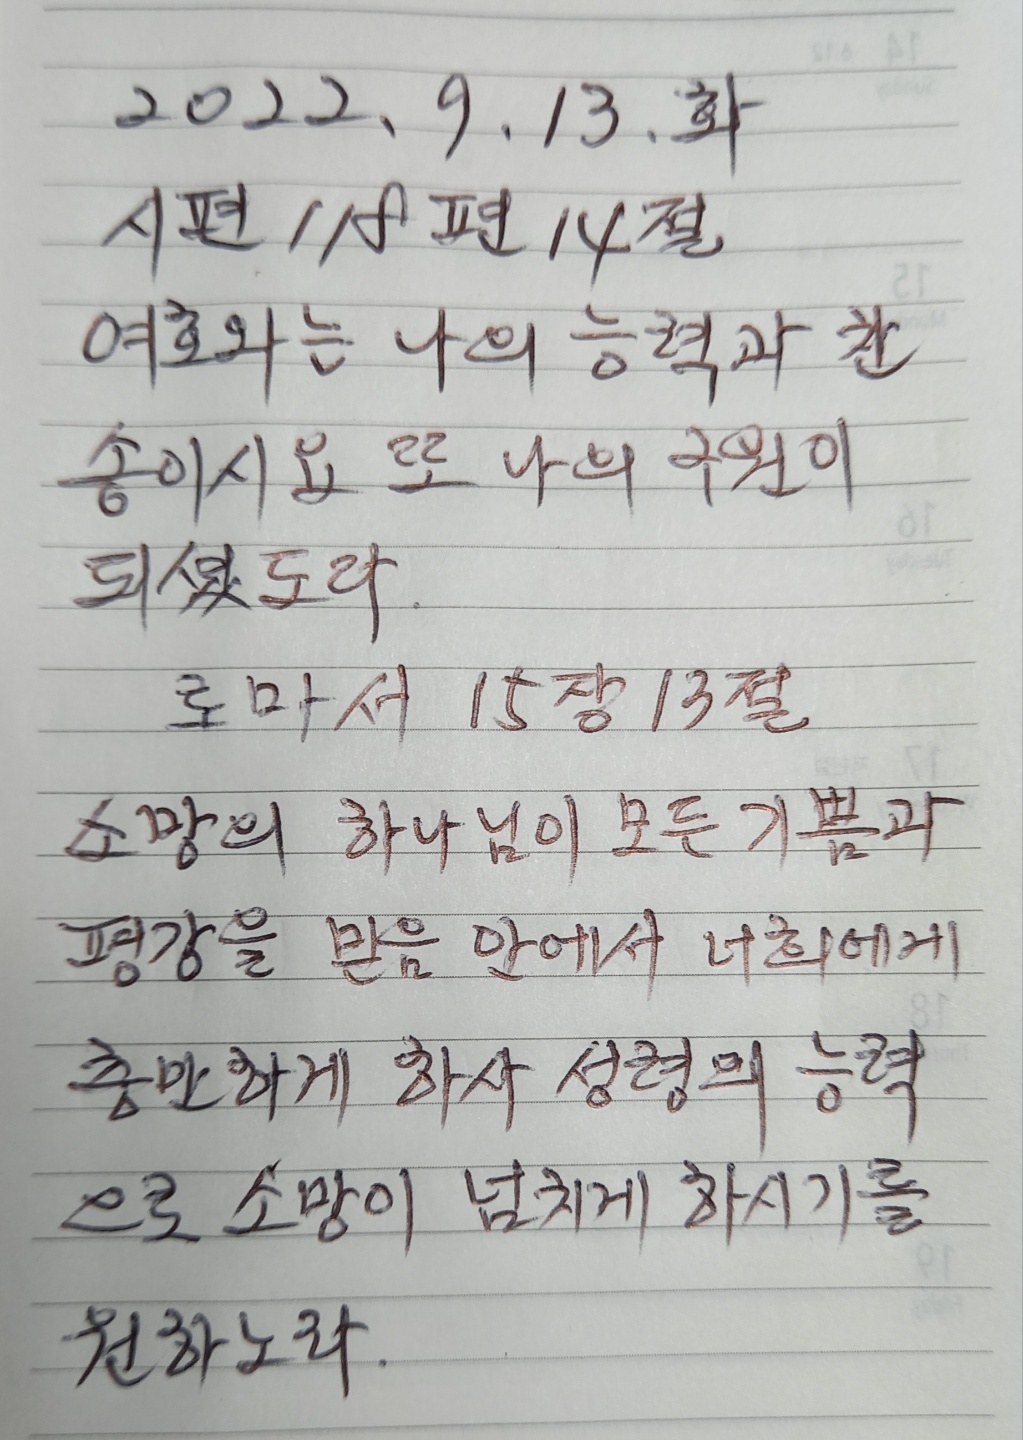 2022. 9. 13. 화
시편 118편 14절
여호와는 나의 능력과 찬
송이시요 또 나의 구원이
되셨도다.
로마서 15장 13절
소망의 하나님이 모든 기쁨과
평강을 믿음 안에서 너희에게
충만하게 하사 성령의 능력
으로 소망이 넘치게 하시기를
원하노라.